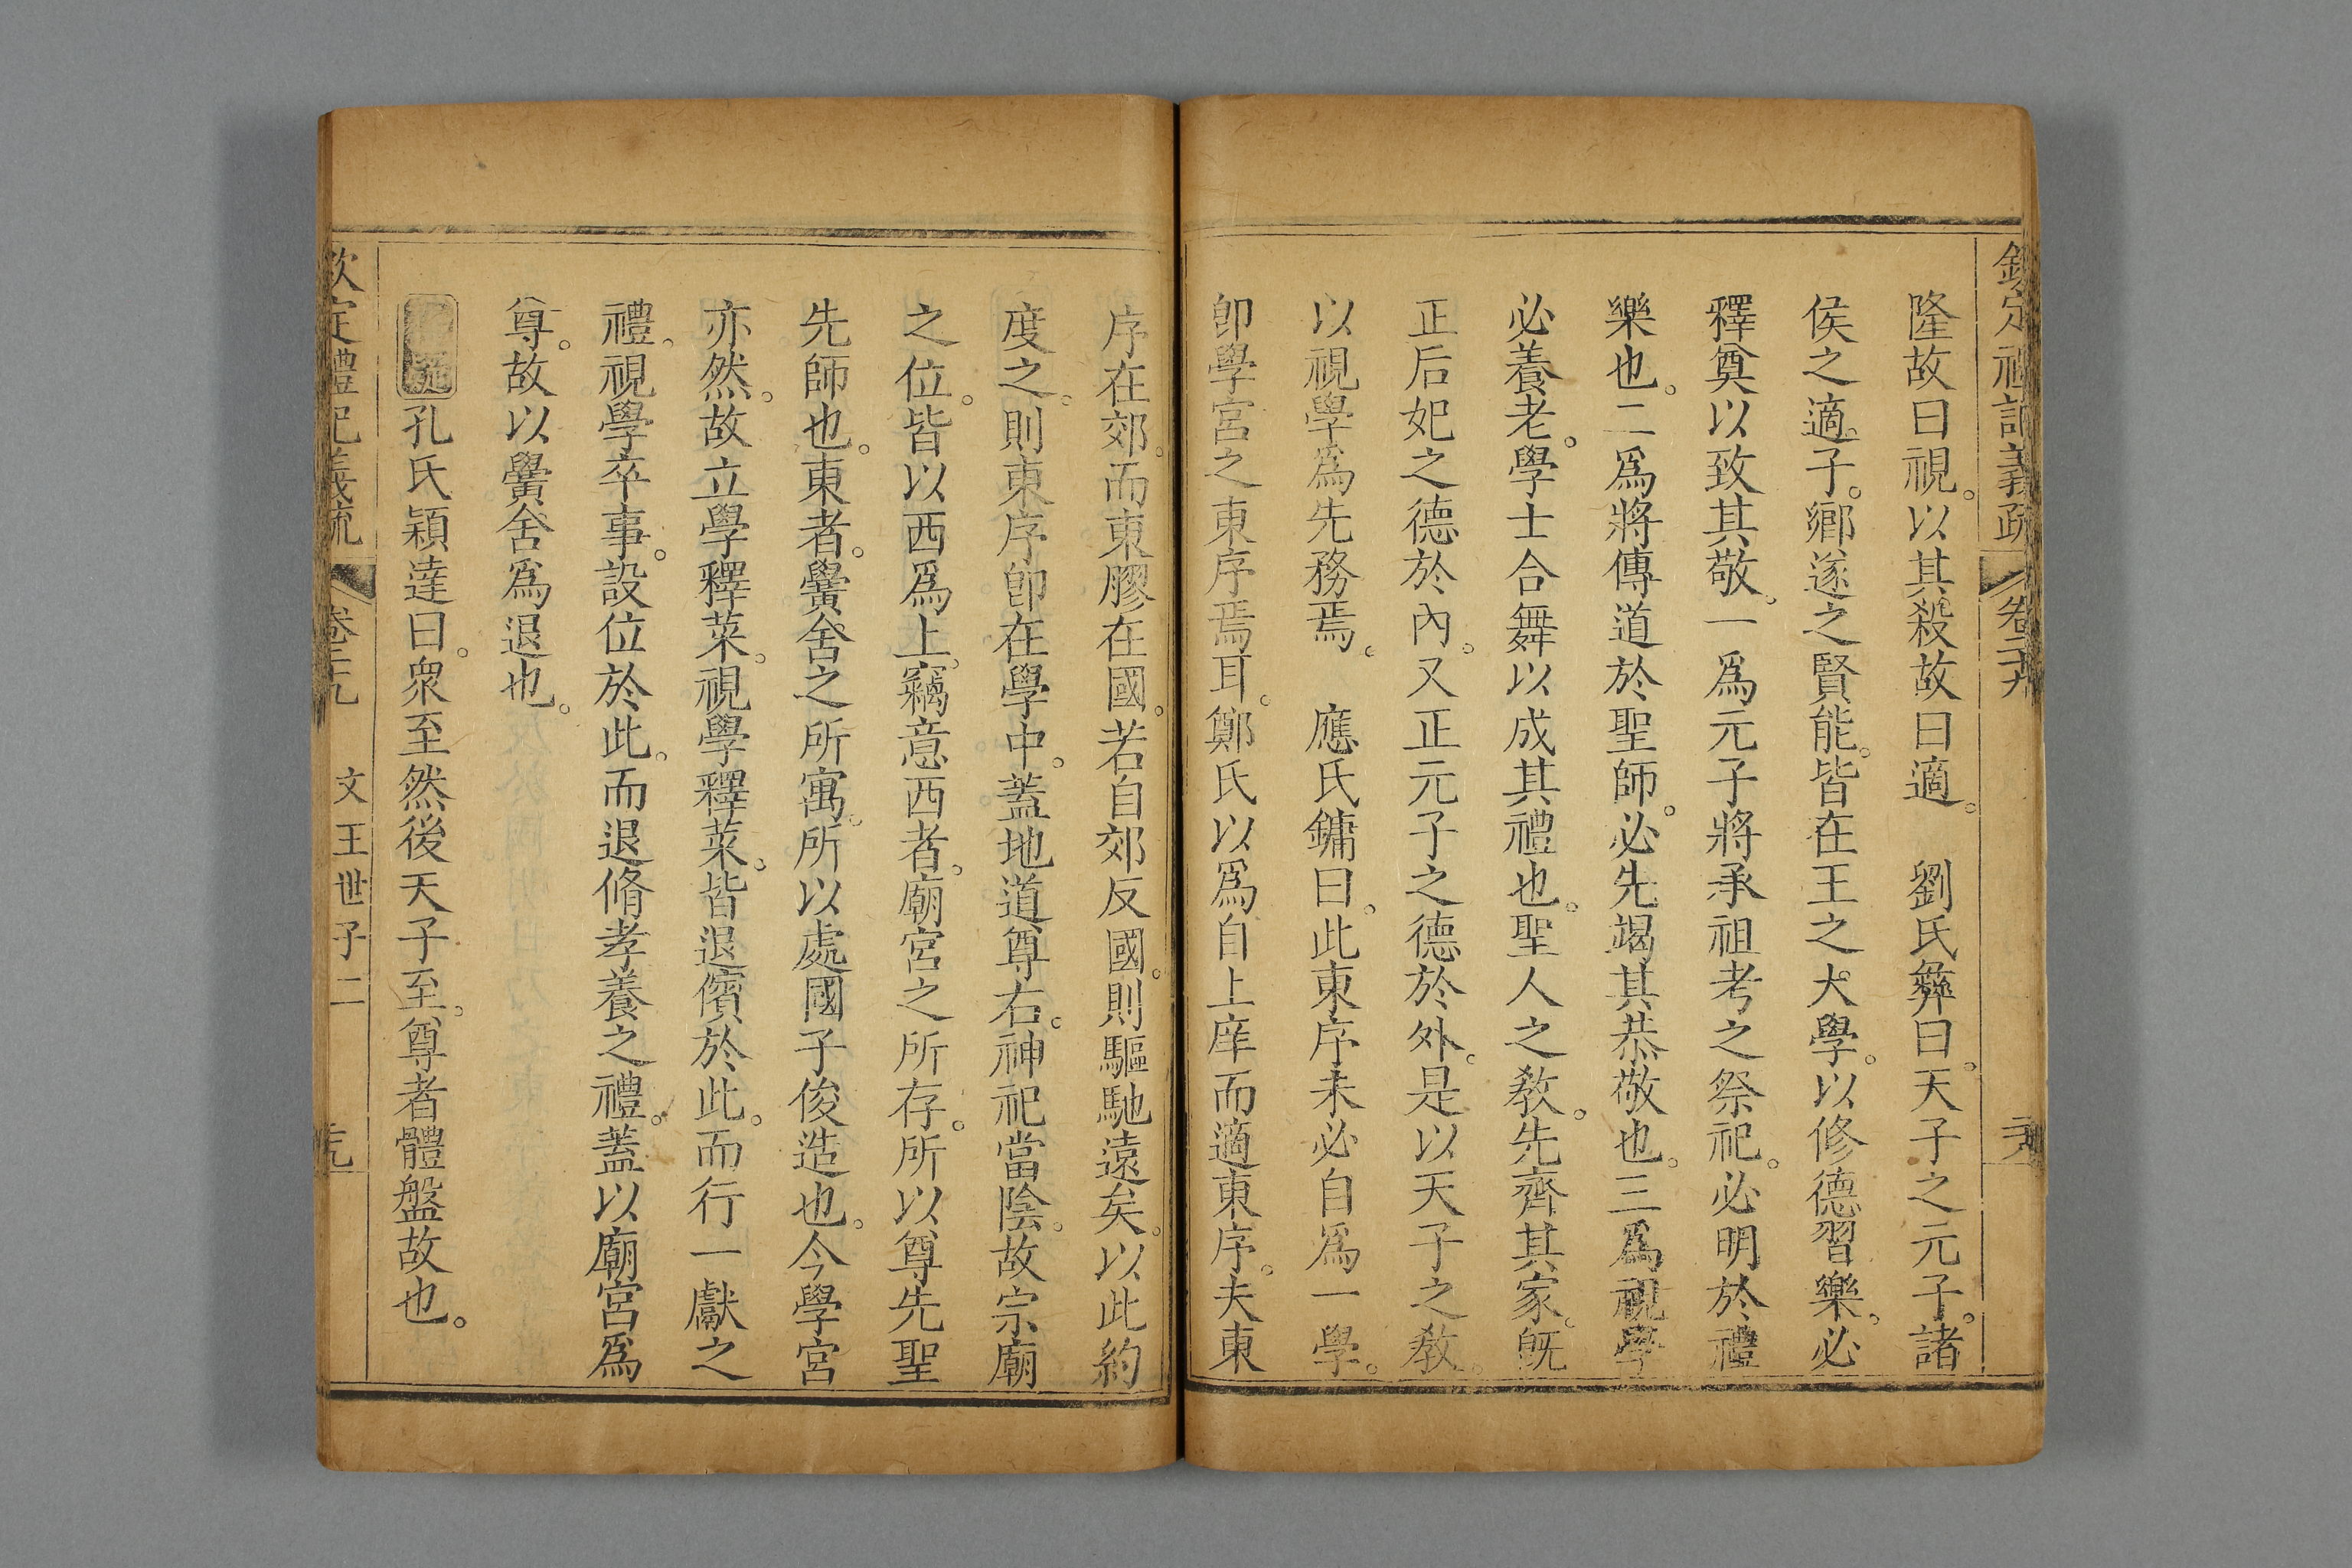 欽定禮記義疏 卷二十九
隆故曰視。以其殺故曰適。 劉氏彝曰。天子之元子。諸
侯之適子。鄉遂之賢能。皆在王之大學。以修德習樂。必
釋奠以致其敬。一爲元子將承祖考之祭祀。必明於禮
樂也。二爲將傳道於聖師。必先竭其恭敬也。三爲視學
必養老。學士合舞以成其禮也。聖人之教。先齊其家。旣
正后妃之德於內。又正元子之德於外。是以天子之教。
以視學爲先務焉。 應氏鏞曰。此東序未必自爲一學。
卽學宮之東序焉耳。鄭氏以爲自上庠而適東序。夫東
序在郊。而東膠在國。若自郊反國。則驅馳遠矣。以此約
度之。則東序卽在學中。蓋地道尊右。神祀當陰。故宗廟
之位。皆以西爲上。竊意西者。廟宮之所存。所以尊先聖
先師也。東者。黌舍之所寓。所以處國子俊造也。今學宮
亦然。故立學釋菜。視學釋菜。皆退儐於此。而行一獻之
禮。視學卒事。設位於此。而退脩孝養之禮。蓋以廟宮爲
尊。故以黌舍爲退也。
孔氏穎達曰。衆至然後天子至。尊者體盤故也。
欽定禮記義疏 卷二十九 文王世子二